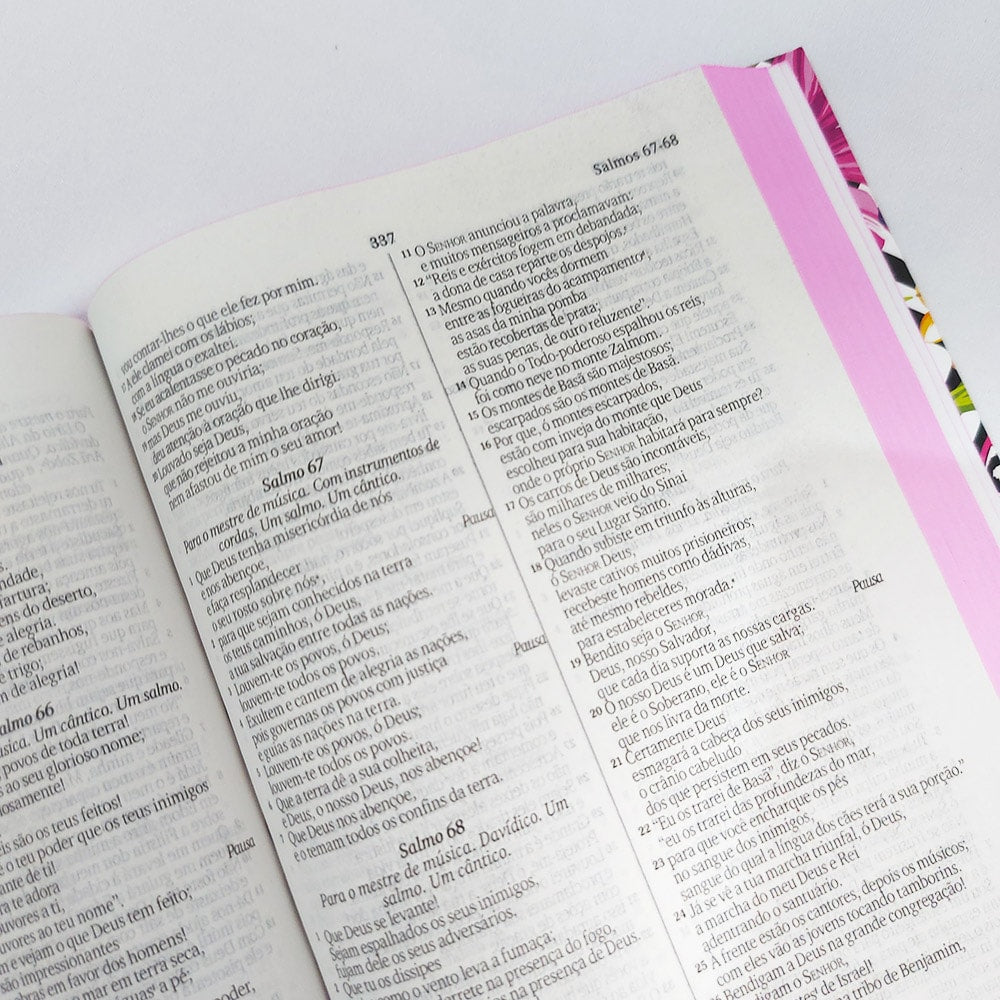 ndade,
artura;
ens do deserto,
e alegria.
de rebanhos,
e trigo;
m de alegria!
almo 66
úsica. Um cântico. Um salmo.
povos de toda terra!
s ao seu glorioso nome;
riosamente!
eis são os teus feitos!
é o teu poder que os teus inimigos
ante de ti!
Pausa
ra te adora
uvores a ti,
uvores ao teu nome".
e vejam o que Deus tem feito;
impressionantes
bras em favor dos homens!
mar em terra seca,
águas a pé;
poder,
Salmos 67-68
337
vou contar-lhes o que ele fez por mim.
17 A ele clamei com os lábios;
com a língua o exaltei.
18 Se eu acalentasse o pecado no coração,
o SENHOR não me ouviria;
19 mas Deus me ouviu,
deu atenção à oração que lhe dirigi.
20 Louvado seja Deus,
que não rejeitou a minha oração
nem afastou de mim o seu amor!
Salmo 67
Para o mestre de música. Com instrumentos de
cordas, Um salmo. Um cântico.
1 Que Deus tenha misericórdia de nós
e nos abençoe,
e faça resplandecer
o seu rosto sobre nós,
Pausa
2 para que sejam conhecidos na terra
os teus caminhos, ó Deus,
a tua salvação entre todas as nações.
3 Louvem-te os povos, ó Deus;
louvem-te todos os povos.
4 Exultem e cantem de alegria as nações,
pois governas os povos com justiça
e guias as nações na terra.
Pausa
5 Louvem-te os povos, ó Deus;
louvem-te todos os povos.
6 Que a terra dê a sua colheita,
e Deus, o nosso Deus, nos abençoe!
7 Que Deus nos abençoe,
e o temam todos os confins da terra.
Salmo 68
Para o mestre de música. Davídico. Um
salmo. Um cântico.
1 Que Deus se levante!
Sejam espalhados os seus inimigos,
fujam dele os seus adversários.
2 Que tu os dissipes
como o vento leva a fumaça;
derrete na presença do fogo,
na presença de Deus.
11 O SENHOR anunciou a palavra,
e muitos mensageiros a proclamavam:
12 "Reis e exércitos fogem em debandada;
a dona de casa reparte os despojos.
13 Mesmo quando vocês dormem
entre as fogueiras do acampamento,
as asas da minha pomba
estão recobertas de prata;
as suas penas, de ouro reluzente".
14 Quando o Todo-poderoso espalhou os reis,
foi como neve no monte Zalmom.
15 Os montes de Basã são majestosos;
escarpados são os montes de Basã.
16 Por que, ó montes escarpados,
estão com inveja do monte que Deus
escolheu para sua habitação,
onde o próprio SENHOR habitará para sempre?
17 Os carros de Deus são incontáveis,
são milhares de milhares;
neles o SENHOR veio do Sinai
para o seu Lugar Santo.
18 Quando subiste em triunfo às alturas,
ó SENHOR Deus,
levaste cativos muitos prisioneiros;
recebeste homens como dádivas
até mesmo rebeldes,
para estabeleceres morada.
Pausa
19 Bendito seja o SENHOR,
Deus, nosso Salvador,
que cada dia suporta as nossas cargas.
20 O nosso Deus é um Deus que salva;
ele é o Soberano, ele é o SENHOR
que nos livra da morte.
21 Certamente Deus
esmagará a cabeça dos seus inimigos,
o crânio cabeludo
dos que persistem em seus pecados.
22 "Eu os trarei de Basã", diz o SENHOR,
"eu os trarei das profundezas do mar,
23 para que você encharque os pés
no sangue dos inimigos,
sangue do qual a língua dos cães terá a sua porção."
24 Já se vê a tua marcha triunfal, ó Deus,
a marcha do meu Deus e Rei
adentrando o santuário.
25 À frente estão os cantores, depois os músicos;
com eles vão as jovens tocando tamborins.
Bendigam a Deus na grande congregação!
o SENHOR,
de Israel!
a tribo de Benjamim,